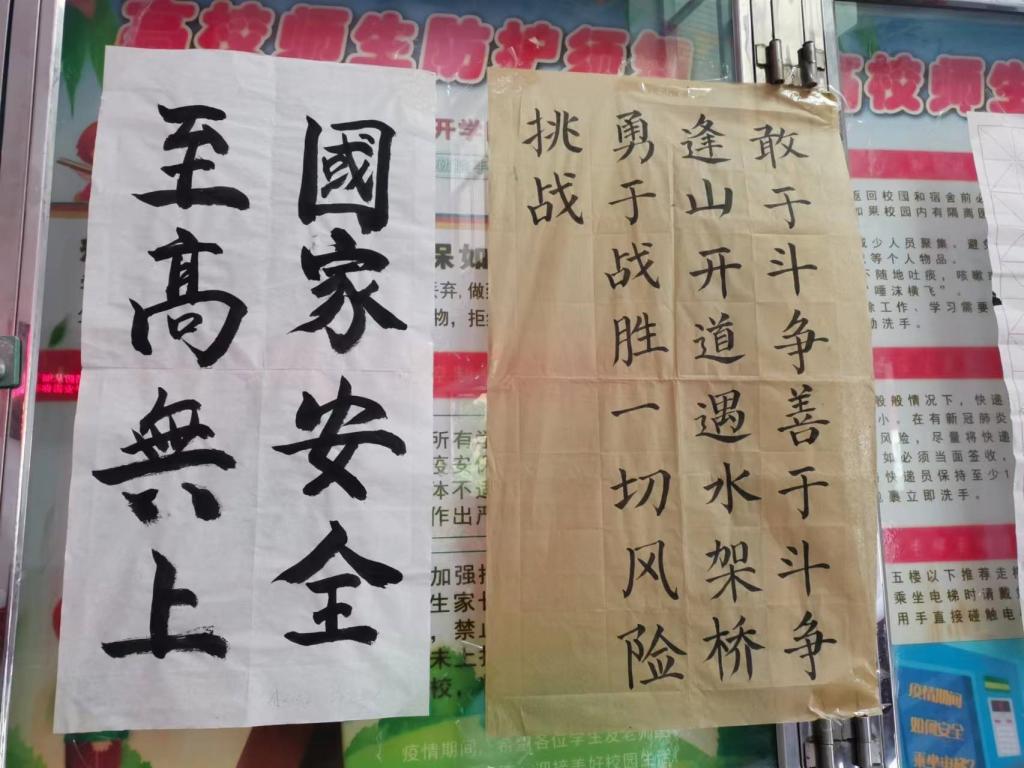 高校师生防护须知
國家安全
至高無上
敢于斗争善于斗争
逢山开道遇水架桥
勇于战胜一切风险
挑战
开学
保如
丢弃,做
物,拒
所有
作出严
加强
生家长
,禁止
未上
校,
疫情期间,希望各位学生及老师
迎接美好校园生活
高校师生
返回校园和宿舍前必
如果校园内有隔离
减少人员聚集。避免
等个人物品。
不随地吐痰,咳嗽
“唾沫横飞”。
除工作、学习需要
勤洗手。
般情况下,快递
小。在有新冠肺炎
风险,尽量将快递
如必须当面签收,
快递员保持至少1
包裹立即洗手。
五楼以下推荐走楼
乘坐电梯时请戴
用手直接碰触电
疫情期间
如何安全
乘坐电梯?